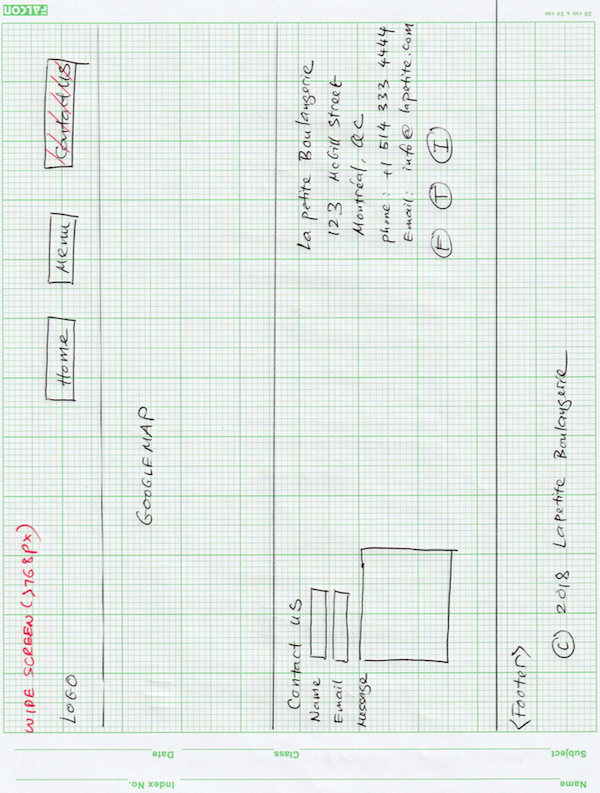 FALCON
29 cm x 21 cm
WIDE SCREEN (>768px)
LOGO
Home
Menu
Contact US
GOOGLE MAP
Contact US
Name
Email
Message
La petite Boulangerie
123 McGill Street
Montréal, QC
phone: +1 514 333 4444
Email: info@lapetite.com
F T I
<Footer>
© 2018 Lapetite Boulangerie
Subject
Class
Date
Name
Index No.